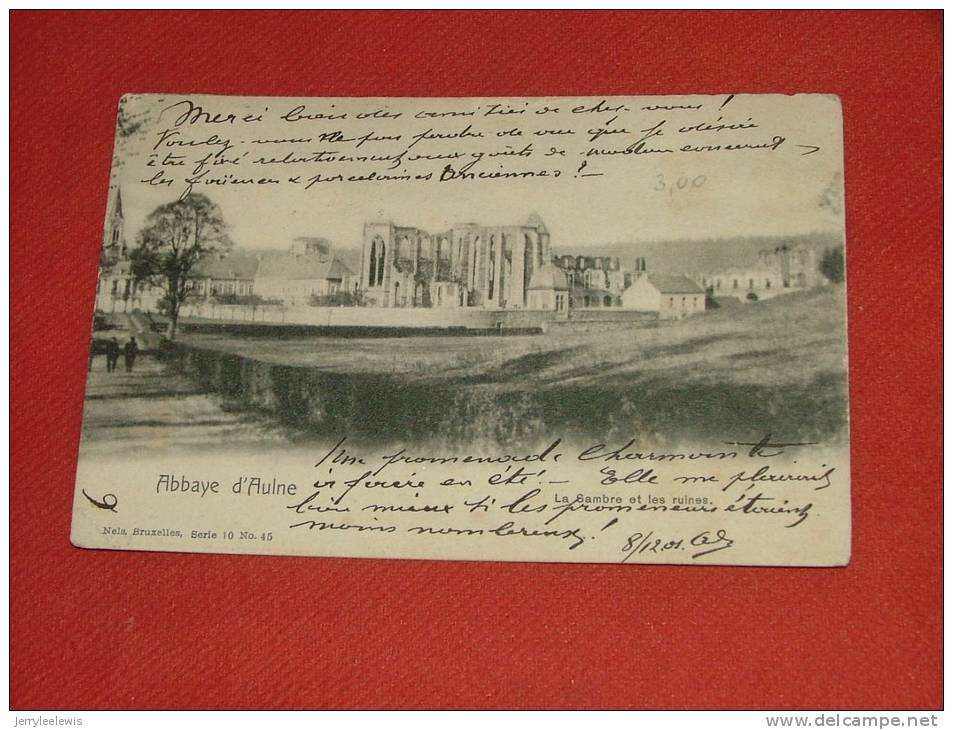 Merci bien des amitiés de chez-vous !
Voulez-vous ne pas perdre de vue que je désire
être fixé relativement aux goûts de madame concernant
les faïences & porcelaines anciennes ? -
3,00
Une promenade charmante
à faire en été ! - Elle me plairait
bien mieux si les promeneurs étaient
moins nombreux !
8/12.01.
Abbaye d'Aulne
La Sambre et les ruines.
Nels, Bruxelles, Serie 10 No. 45
jerryleelewis
www.delcampe.net